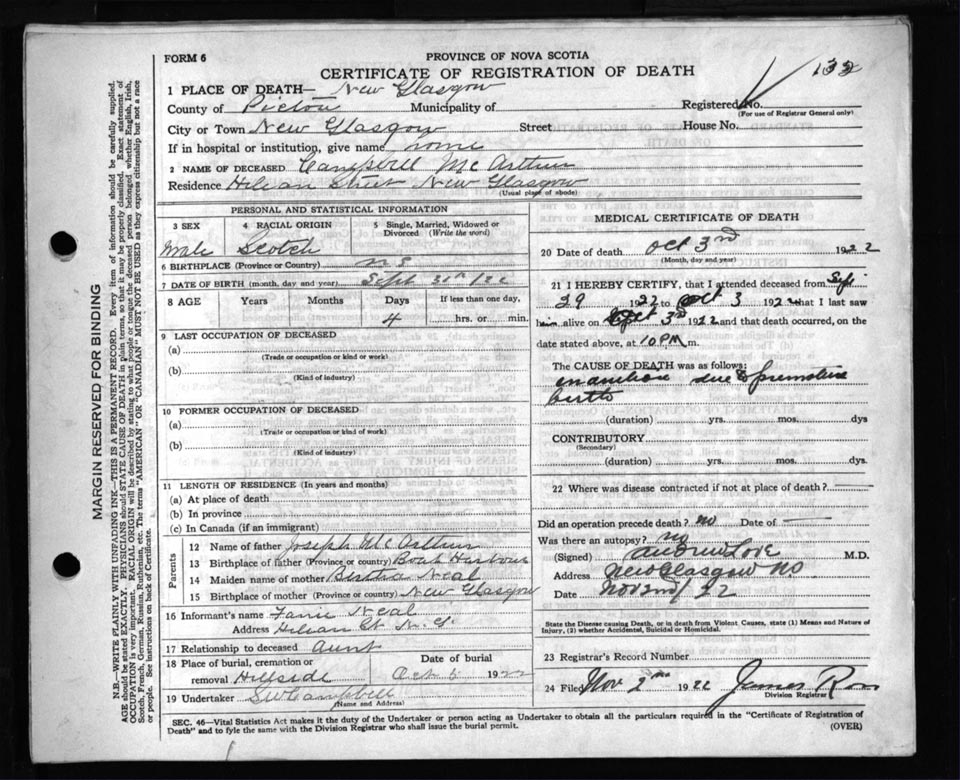 FORM 6
PROVINCE OF NOVA SCOTIA
CERTIFICATE OF REGISTRATION OF DEATH
132
1 PLACE OF DEATH— New Glasgow
County of Pictou Municipality of
Registered No.
(For use of Registrar General only)
City or Town New Glasgow Street House No.
If in hospital or institution, give name home
2 NAME OF DECEASED Campbell McArthur
Residence Street New Glasgow
(Usual place of abode)
PERSONAL AND STATISTICAL INFORMATION
3 SEX 4 RACIAL ORIGIN 5 Single, Married, Widowed or
Divorced (Write the word)
Male Scotch
6 BIRTHPLACE (Province or Country) N S
7 DATE OF BIRTH (month, day and year) Sept 30th /22
8 AGE Years Months Days If less than one day,
4 hrs. or min.
9 LAST OCCUPATION OF DECEASED
(a)
(Trade or occupation or kind of work)
(b)
(Kind of industry)
10 FORMER OCCUPATION OF DECEASED
(a)
(Trade or occupation or kind of work)
(b)
(Kind of industry)
11 LENGTH OF RESIDENCE (In years and months)
(a) At place of death
(b) In province
(c) In Canada (if an immigrant)
Parents
12 Name of father Joseph McArthur
13 Birthplace of father (Province or country) Boat Harbour
14 Maiden name of mother Bertha Neal
15 Birthplace of mother (Province or country) New Glasgow
16 Informant's name Neal
Address St. N. G.
17 Relationship to deceased Aunt
18 Place of burial, cremation or
removal Hillside
Date of burial
Oct 5 1922
19 Undertaker S W Campbell
(Name and Address)
MEDICAL CERTIFICATE OF DEATH
20 Date of death Oct 3rd 1922
(Month, day and year)
21 I HEREBY CERTIFY, that I attended deceased from Sept
29 1922 to Oct 3 1922 that I last saw
him alive on Oct 3rd 1922 and that death occurred, on the
date stated above, at 10 PM m.
The CAUSE OF DEATH was as follows:
inanition due to premature
birth
(duration) yrs. mos. dys
CONTRIBUTORY
(Secondary)
(duration) yrs. mos. dys.
22 Where was disease contracted if not at place of death?
Did an operation precede death? no Date of
Was there an autopsy? no
(Signed) Andrew Love M.D.
Address New Glasgow NS
Date Nov 2nd/22
State the Disease causing Death, or in death from Violent Causes, state (1) Means and Nature of
Injury, (2) whether Accidental, Suicidal or Homicidal.
23 Registrar's Record Number
24 Filed Nov 2nd 1922 James Ross
Division Registrar
SEC. 46—Vital Statistics Act makes it the duty of the Undertaker or person acting as Undertaker to obtain all the particulars required in the "Certificate of Registration of
Death" and to fyle the same with the Division Registrar who shall issue the burial permit.
(OVER)
MARGIN RESERVED FOR BINDING
N.B.—WRITE PLAINLY WITH UNFADING INK—THIS IS A PERMANENT RECORD. Every item of information should be carefully supplied.
AGE should be stated EXACTLY. PHYSICIANS should STATE CAUSE OF DEATH in plain terms, so that it may be properly classified. Exact statement of
OCCUPATION is very important. RACIAL ORIGIN will be described by stating to what people or tongue the deceased person belonged whether English, Irish,
Scotch, French, German, Russian, Ruthenian, etc. The terms "AMERICAN" OR "CANADIAN" MUST NOT BE USED as they express citizenship but not a race
or people. See instructions on back of Certificate.